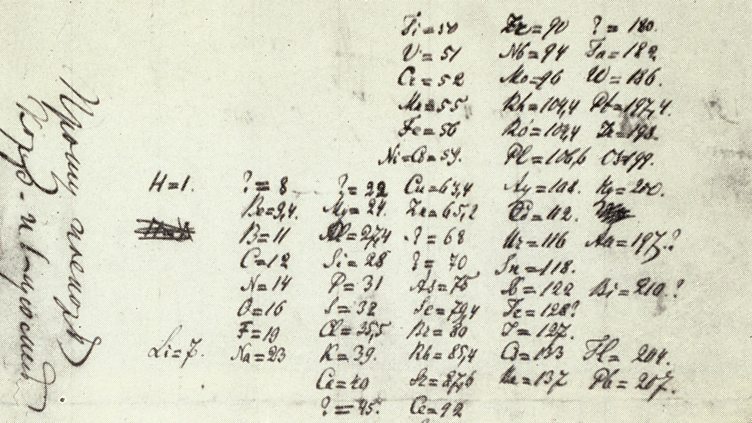 Ti=50 Zr=90 ?=180.
V=51 Nb=94 Ta=182
Cr=52 Mo=96 W=186.
Mn=55 Rh=104,4 Pt=197,4.
Fe=56 Ru=104,4 Ir=198.
Ni=Co=59. Pl=106,6 Os=199.
H=1. ?=8 ?=22 Cu=63,4 Ag=108. Hg=200.
Be=9,4. Mg=24. Zn=65,2 Cd=112.
B=11 Al=27,4 ?=68 Ur=116 Au=197?
C=12 Si=28 ?=70 Sn=118.
N=14 P=31 As=75 Sb=122 Bi=210?
O=16 S=32 Se=79,4 Te=128?
F=19 Cl=35,5 Br=80 J=127.
Li=7. Na=23 K=39. Rb=85,4 Cs=133 Tl=204.
Ca=40 Sr=87,6 Ba=137 Pb=207.
?=45. Ce=92
Прошу